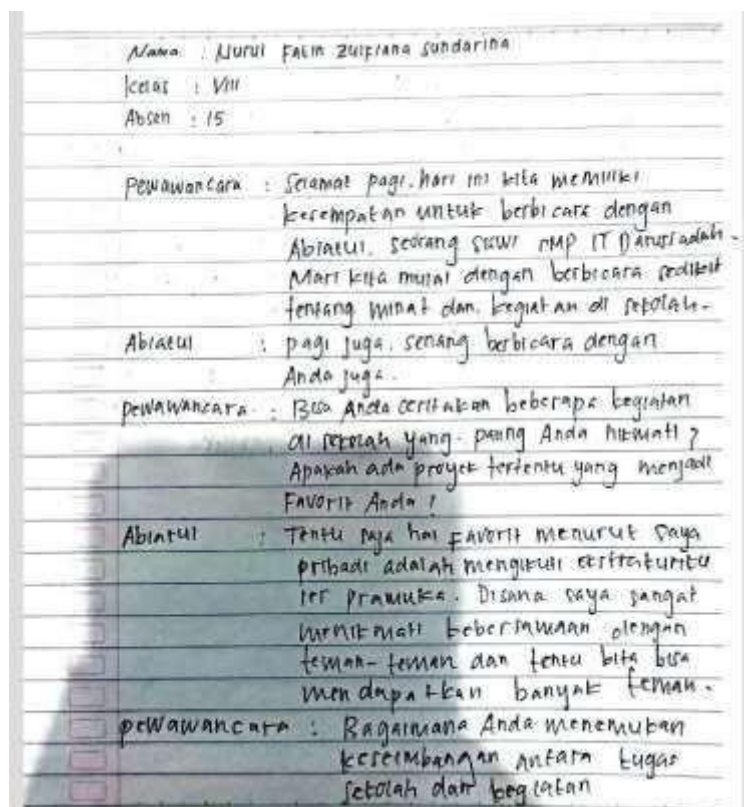 Nama : Nurul Falin Zulfiana Sundarina
Kelas : VIII
Absen : 15
Pewawancara : Selamat pagi, hari ini kita memiliki
kesempatan untuk berbicara dengan
Abiatul, seorang siswi SMP IT Darussadah.
Mari kita mulai dengan berbicara sedikit
tentang minat dan kegiatan di sekolah.
Abiatul : pagi juga, senang berbicara dengan
Anda juga.
pewawancara : Bisa Anda ceritakan beberapa kegiatan
di sekolah yang paling Anda nikmati ?
Apakah ada proyek tertentu yang menjadi
Favorit Anda ?
Abiatul : Tentu saja hal Favorit menurut saya
pribadi adalah mengikuti
ler pramuka. Disana saya sangat
menikmati kebersamaan dengan
teman-teman dan tentu kita bisa
mendapatkan banyak teman.
pewawancara : Bagaimana Anda menemukan
keseimbangan antara tugas
sekolah dan kegiatan